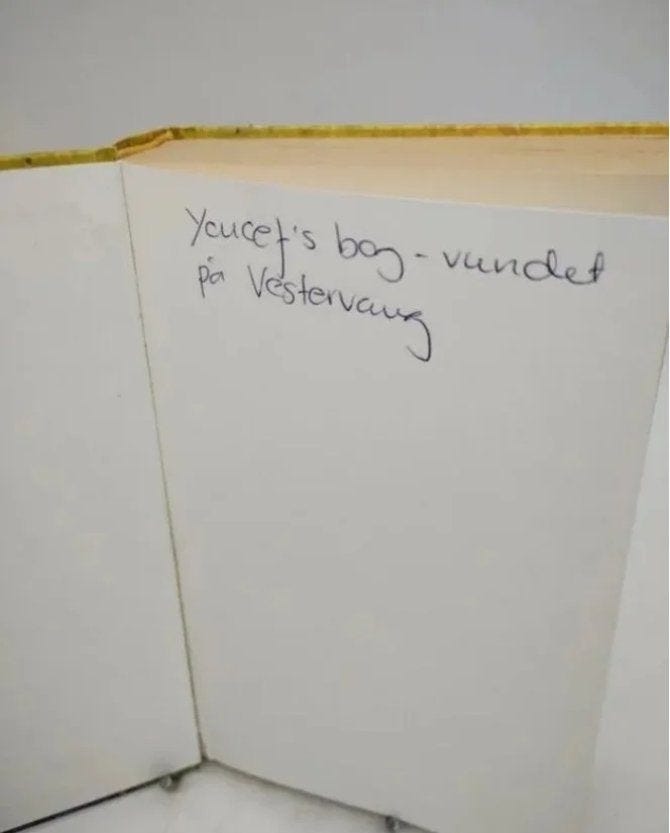 Youcef's bog - vundet
på Vestervang